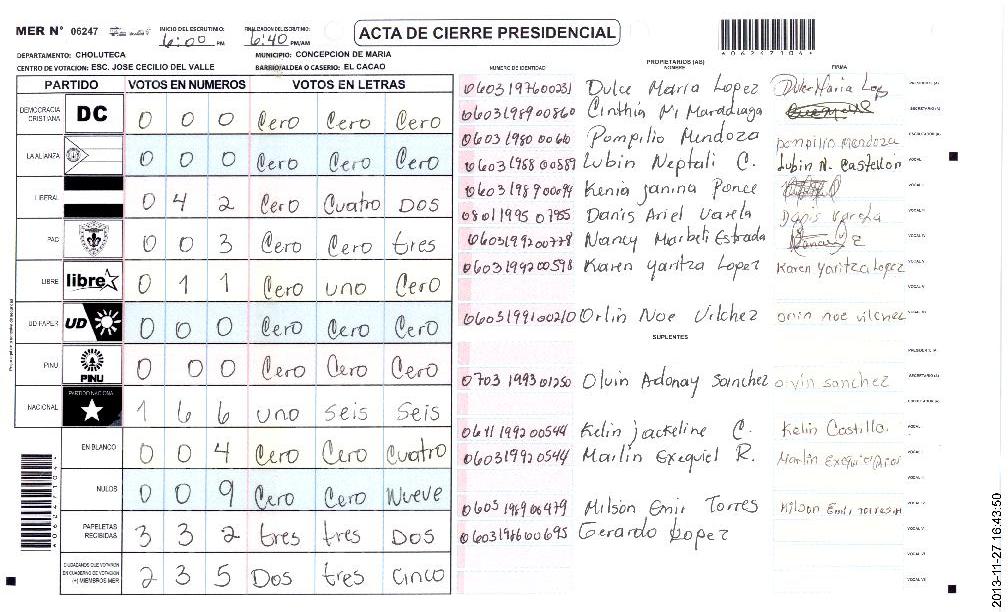 MER N° 06247
INICIO DEL ESCRUTINIO: 6:00 PM
FINALIZACION DEL ESCRUTINIO: 6:40 PM/AM
ACTA DE CIERRE PRESIDENCIAL
DEPARTAMENTO: CHOLUTECA
MUNICIPIO: CONCEPCION DE MARIA
CENTRO DE VOTACION: ESC. JOSE CECILIO DEL VALLE
BARRIO/ALDEA O CASERIO: EL CACAO
PARTIDO VOTOS EN NUMEROS VOTOS EN LETRAS
DEMOCRACIA CRISTIANA DC 0 0 0 Cero Cero Cero
LA ALIANZA 0 0 0 Cero Cero Cero
LIBERAL 0 4 2 Cero Cuatro Dos
PAC 0 0 3 Cero Cero tres
LIBRE libre 0 1 1 Cero uno Cero
UD-FAPER UD 0 0 0 Cero Cero Cero
PINU PINU 0 0 0 Cero Cero Cero
NACIONAL PARTIDO NACIONAL 1 6 6 uno seis Seis
EN BLANCO 0 0 4 Cero Cero Cuatro
NULOS 0 0 9 Cero Cero Nueve
PAPELETAS RECIBIDAS 3 3 2 tres tres Dos
CIUDADANOS QUE VOTARON EN CUADERNO DE VOTACION (+) MIEMBROS MER 2 3 5 Dos tres cinco
PROPIETARIOS (AS)
NUMERO DE IDENTIDAD NOMBRE FIRMA
0603197600231 Dulce Maria Lopez Dulce Maria Lop PRESIDENTE (A)
0603198900860 Cinthia M. Maradiaga SECRETARIO (A)
0603 1980 00610 Pompilio Mendoza pompilio mendoza ESCRUTADOR (A)
0603 1988 00589 Lubin Neptali C. Lubin N. Castellon VOCAL
0603198900094 Kenia janina Ponce VOCAL
0801 1995 07955 Danis Ariel Varela Danis Varela VOCAL
0603199200778 Nancy Marbeli Estrada VOCAL
0603199200598 Karen Yaritza Lopez Karen Yaritza Lopez VOCAL
0603199100210 Orlin Noe Vilchez orlin noe vilchez
SUPLENTES
PRESIDENTE (A)
0703 1993 01250 Olvin Adonay Sanchez olvin sanchez SECRETARIO (A)
0611 1992 00544 Kelin jackeline C. Kelin Castillo VOCAL
0603199200544 Marlin Exequiel R. Marlin VOCAL
0605 1989 00479 Milson Emir Torres Milson Emir Torres
0603198600695 Gerardo Lopez
2013-11-27 16:43:50